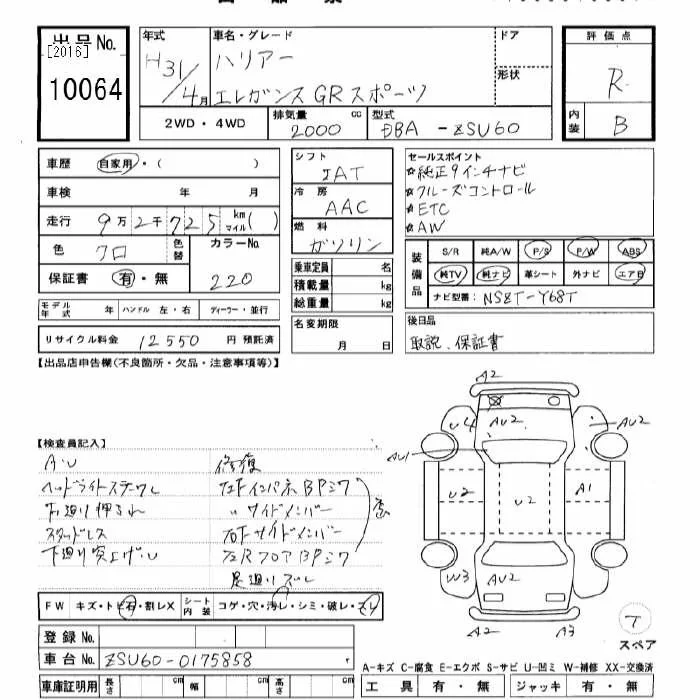 出品No.
[2016]
10064
年式
H31/4月
車名・グレード
ハリアー
エレガンス GRスポーツ
ドア
形状
評価点
R
内装
B
2WD・4WD
排気量
2000
cc
型式
DBA-ZSU60
車歴 自家用・( )
車検 年 月
走行 9万2千725 km マイル( )
色 クロ 色替
カラーNo. 220
保証書 有・無
シフト
IAT
冷房
AAC
燃料
ガソリン
乗車定員 名
積載量 kg
総重量 kg
名変期限
月 日
セールスポイント
☆純正9インチナビ
☆クルーズコントロール
☆ETC
☆AW
装備品
S/R 純A/W P/S P/W ABS
純TV 純ナビ 革シート 外ナビ エアB
ナビ型番: NSZT-Y68T
モデル年式 年 ハンドル 左・右 ディーラー・並行
リサイクル料金 12550 円 預託済
後日品
取説、保証書
【出品店申告欄(不良箇所・欠品・注意事項等)】
【検査員記入】
A・U
ヘッドライトステワレ
スタッドレス
下廻り突上げ・U
修復
左Fインパネ BPミワ
〃サイドメンバー
右Fサイドメンバー
左Rフロア BPミワ
足廻りズレ
A2
U4
AU2
AU2
AU1
U2
U2
A1
W3
AU2
A2
A3
T
スペア
FW キズ・トビ石・割レX シート内装 コゲ・穴・汚レ・シミ・破レ・スレ
登録No.
車台No. ZSU60-0175858
車庫証明用 長さ cm 幅 cm 高さ cm
A-キズ C-腐食 E-エクボ S-サビ U-凹ミ W-補修 XX-交換済
工具 有・無 ジャッキ 有・無